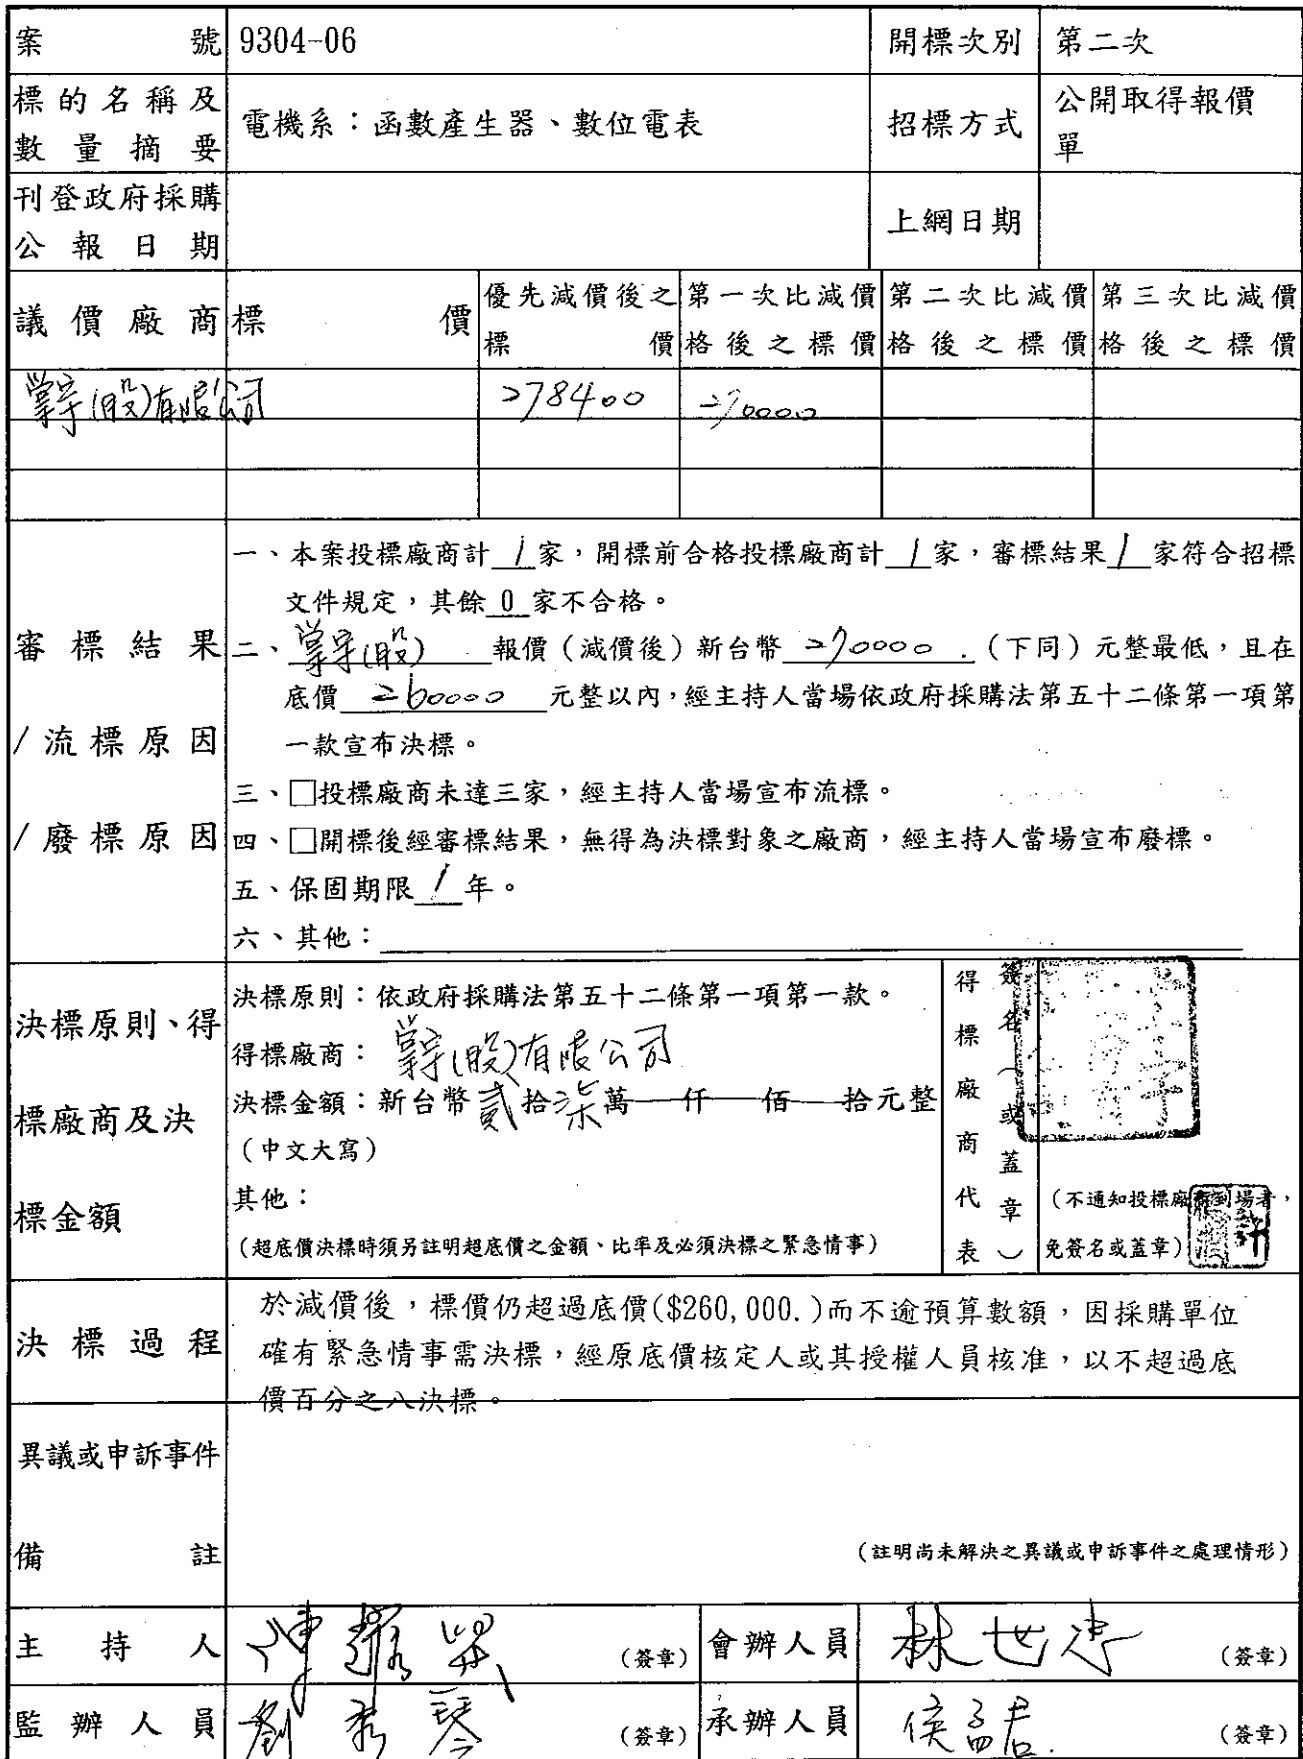 案號 9304-06 開標次別 第二次
標的名稱及
數量摘要
電機系：函數產生器、數位電表
招標方式
公開取得報價
單
刊登政府採購
公報日期
上網日期
議價廠商 標價
優先減價後之
標價
第一次比減價
格後之標價
第二次比減價
格後之標價
第三次比減價
格後之標價
掌宇(股)有限公司 278400 270000
審標結果
/流標原因
/廢標原因
一、本案投標廠商計 1 家，開標前合格投標廠商計 1 家，審標結果 1 家符合招標
文件規定，其餘 0 家不合格。
二、掌宇(股) 報價（減價後）新台幣 270000 .（下同）元整最低，且在
底價 260000 元整以內，經主持人當場依政府採購法第五十二條第一項第
一款宣布決標。
三、□投標廠商未達三家，經主持人當場宣布流標。
四、□開標後經審標結果，無得為決標對象之廠商，經主持人當場宣布廢標。
五、保固期限 1 年。
六、其他：
決標原則、得
標廠商及決
標金額
決標原則：依政府採購法第五十二條第一項第一款。
得標廠商： 掌宇(股)有限公司
決標金額：新台幣貳拾柒萬 仟 佰 拾元整
（中文大寫）
其他：
（超底價決標時須另註明超底價之金額、比率及必須決標之緊急情事）
得標廠商代表
簽名（或蓋章）
（不通知投標廠商到場者，
免簽名或蓋章）
決標過程
於減價後，標價仍超過底價($260,000.)而不逾預算數額，因採購單位
確有緊急情事需決標，經原底價核定人或其授權人員核准，以不超過底
價百分之八決標。
異議或申訴事件
備註
（註明尚未解決之異議或申訴事件之處理情形）
主持人 （簽章） 會辦人員 林世忠 （簽章）
監辦人員 劉秀琴 （簽章） 承辦人員 侯孟君. （簽章）